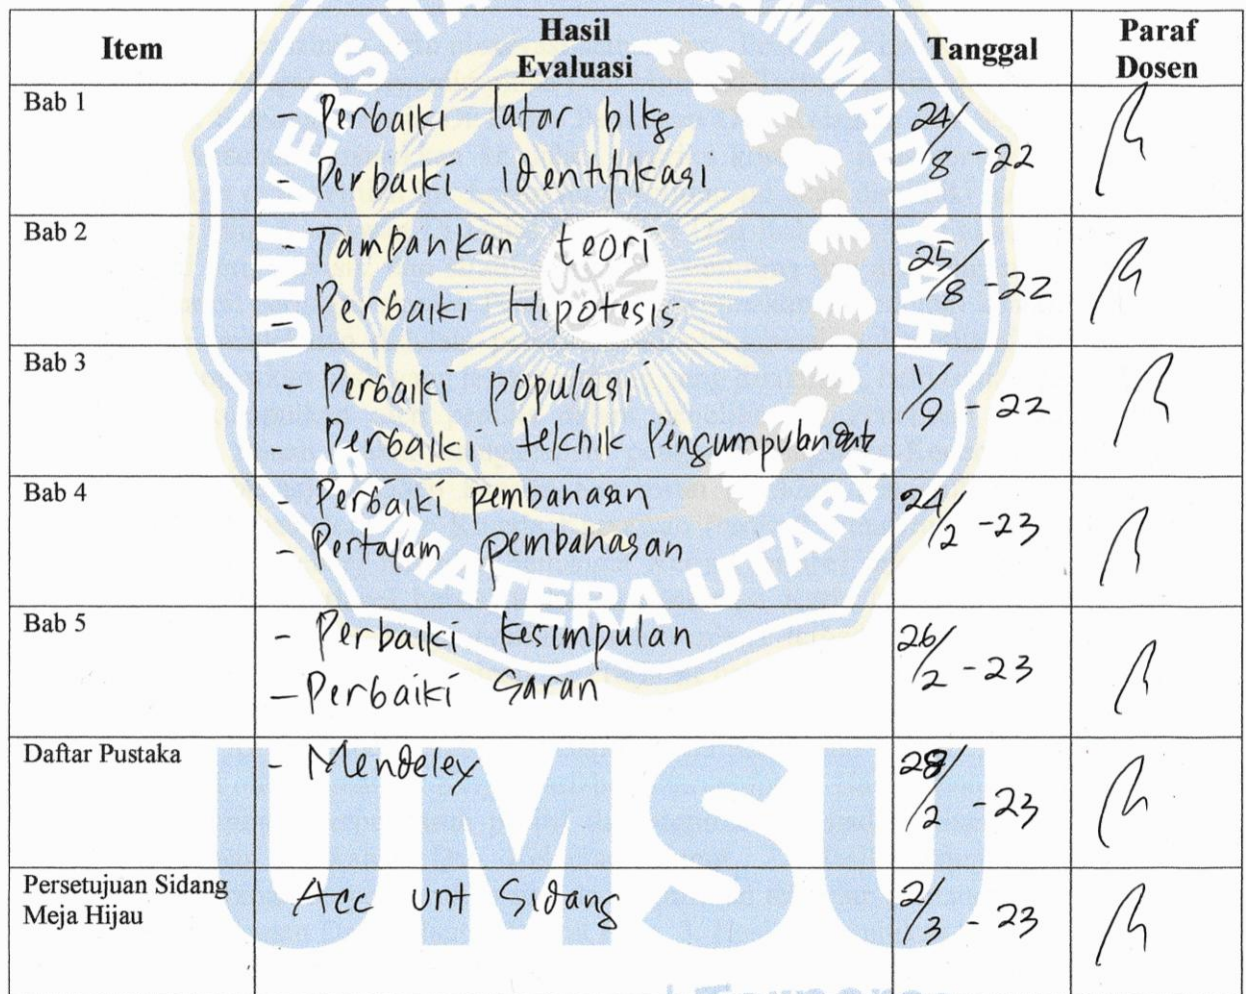 UNIVERSITAS MUHAMMADIYAH
SUMATERA UTARA
Item
Hasil
Evaluasi
Tanggal
Paraf
Dosen
Bab 1
- Perbaiki latar blkg
- Perbaiki identifikasi
24/8 - 22
Bab 2
- Tambahkan teori
- Perbaiki Hipotesis
25/8 - 22
Bab 3
- Perbaiki populasi
- Perbaiki teknik Pengumpulan data
1/9 - 22
Bab 4
- Perbaiki pembahasan
- Pertajam pembahasan
24/2 - 23
Bab 5
- Perbaiki kesimpulan
- Perbaiki Saran
26/2 - 23
Daftar Pustaka
- Mendeley
28/2 - 23
Persetujuan Sidang
Meja Hijau
Acc unt Sidang
2/3 - 23
UMSU